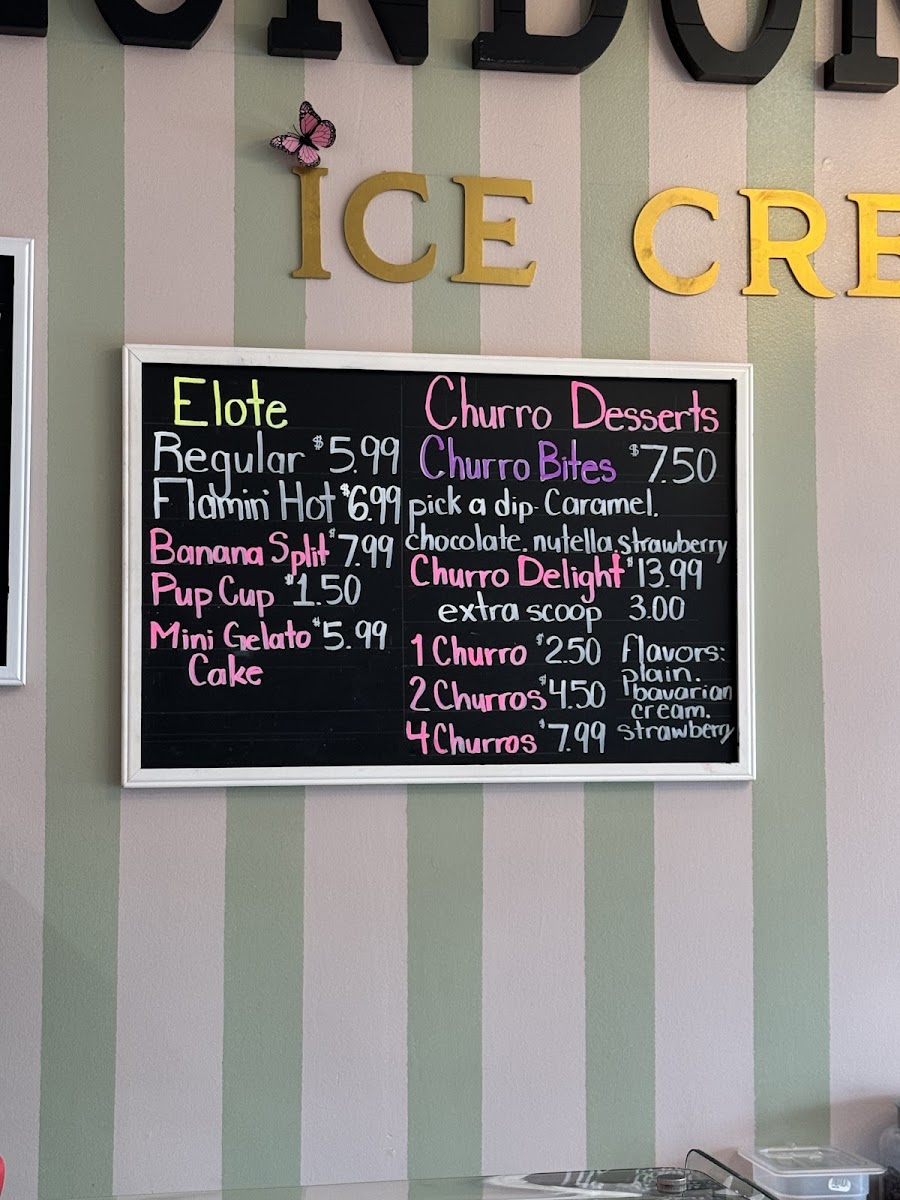 ICE CRE
Elote
Regular $5.99
Flamin' Hot $6.99
Banana Split $7.99
Pup Cup $1.50
Mini Gelato $5.99
Cake
Churro Desserts
Churro Bites $7.50
pick a dip- Caramel.
chocolate. nutella. strawberry
Churro Delight $13.99
extra scoop 3.00
1 Churro $2.50
2 Churros $4.50
4 Churros $7.99
flavors:
plain.
bavarian
cream.
strawberry